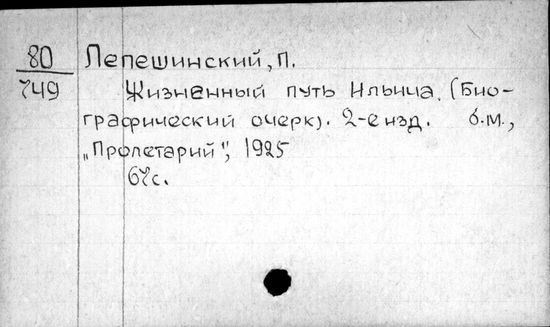 80
749
Лепешинский, П.
Жизненный путь Ильича. (Био-
графический очерк). 2-е изд. б.м.,
„Пролетарий", 1925
с.